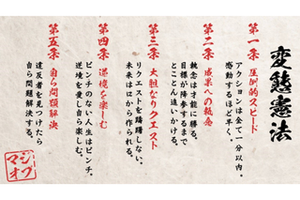 変態憲法
第一条 圧倒的スピード
アクションは全て一分以内。
感動するほど早く。
第二条 成果への執念
執念は才能に勝る。
目標が降参するまで
とことん追いかける。
第三条 大胆なリクエスト
リクエストを躊躇しない。
未来は口から作られる。
第四条 逆境を楽しむ
ピンチのない人生はピンチ。
逆境を愛し自ら楽しむ。
第五条 自ら問題解決
違反者を見つけたら
自ら問題解決する。
マジ
オブ